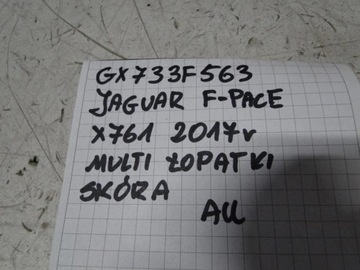 GX733F563
JAGUAR F-PACE
X761 2017r
MULTI ŁOPATKI
SKÓRA
AU